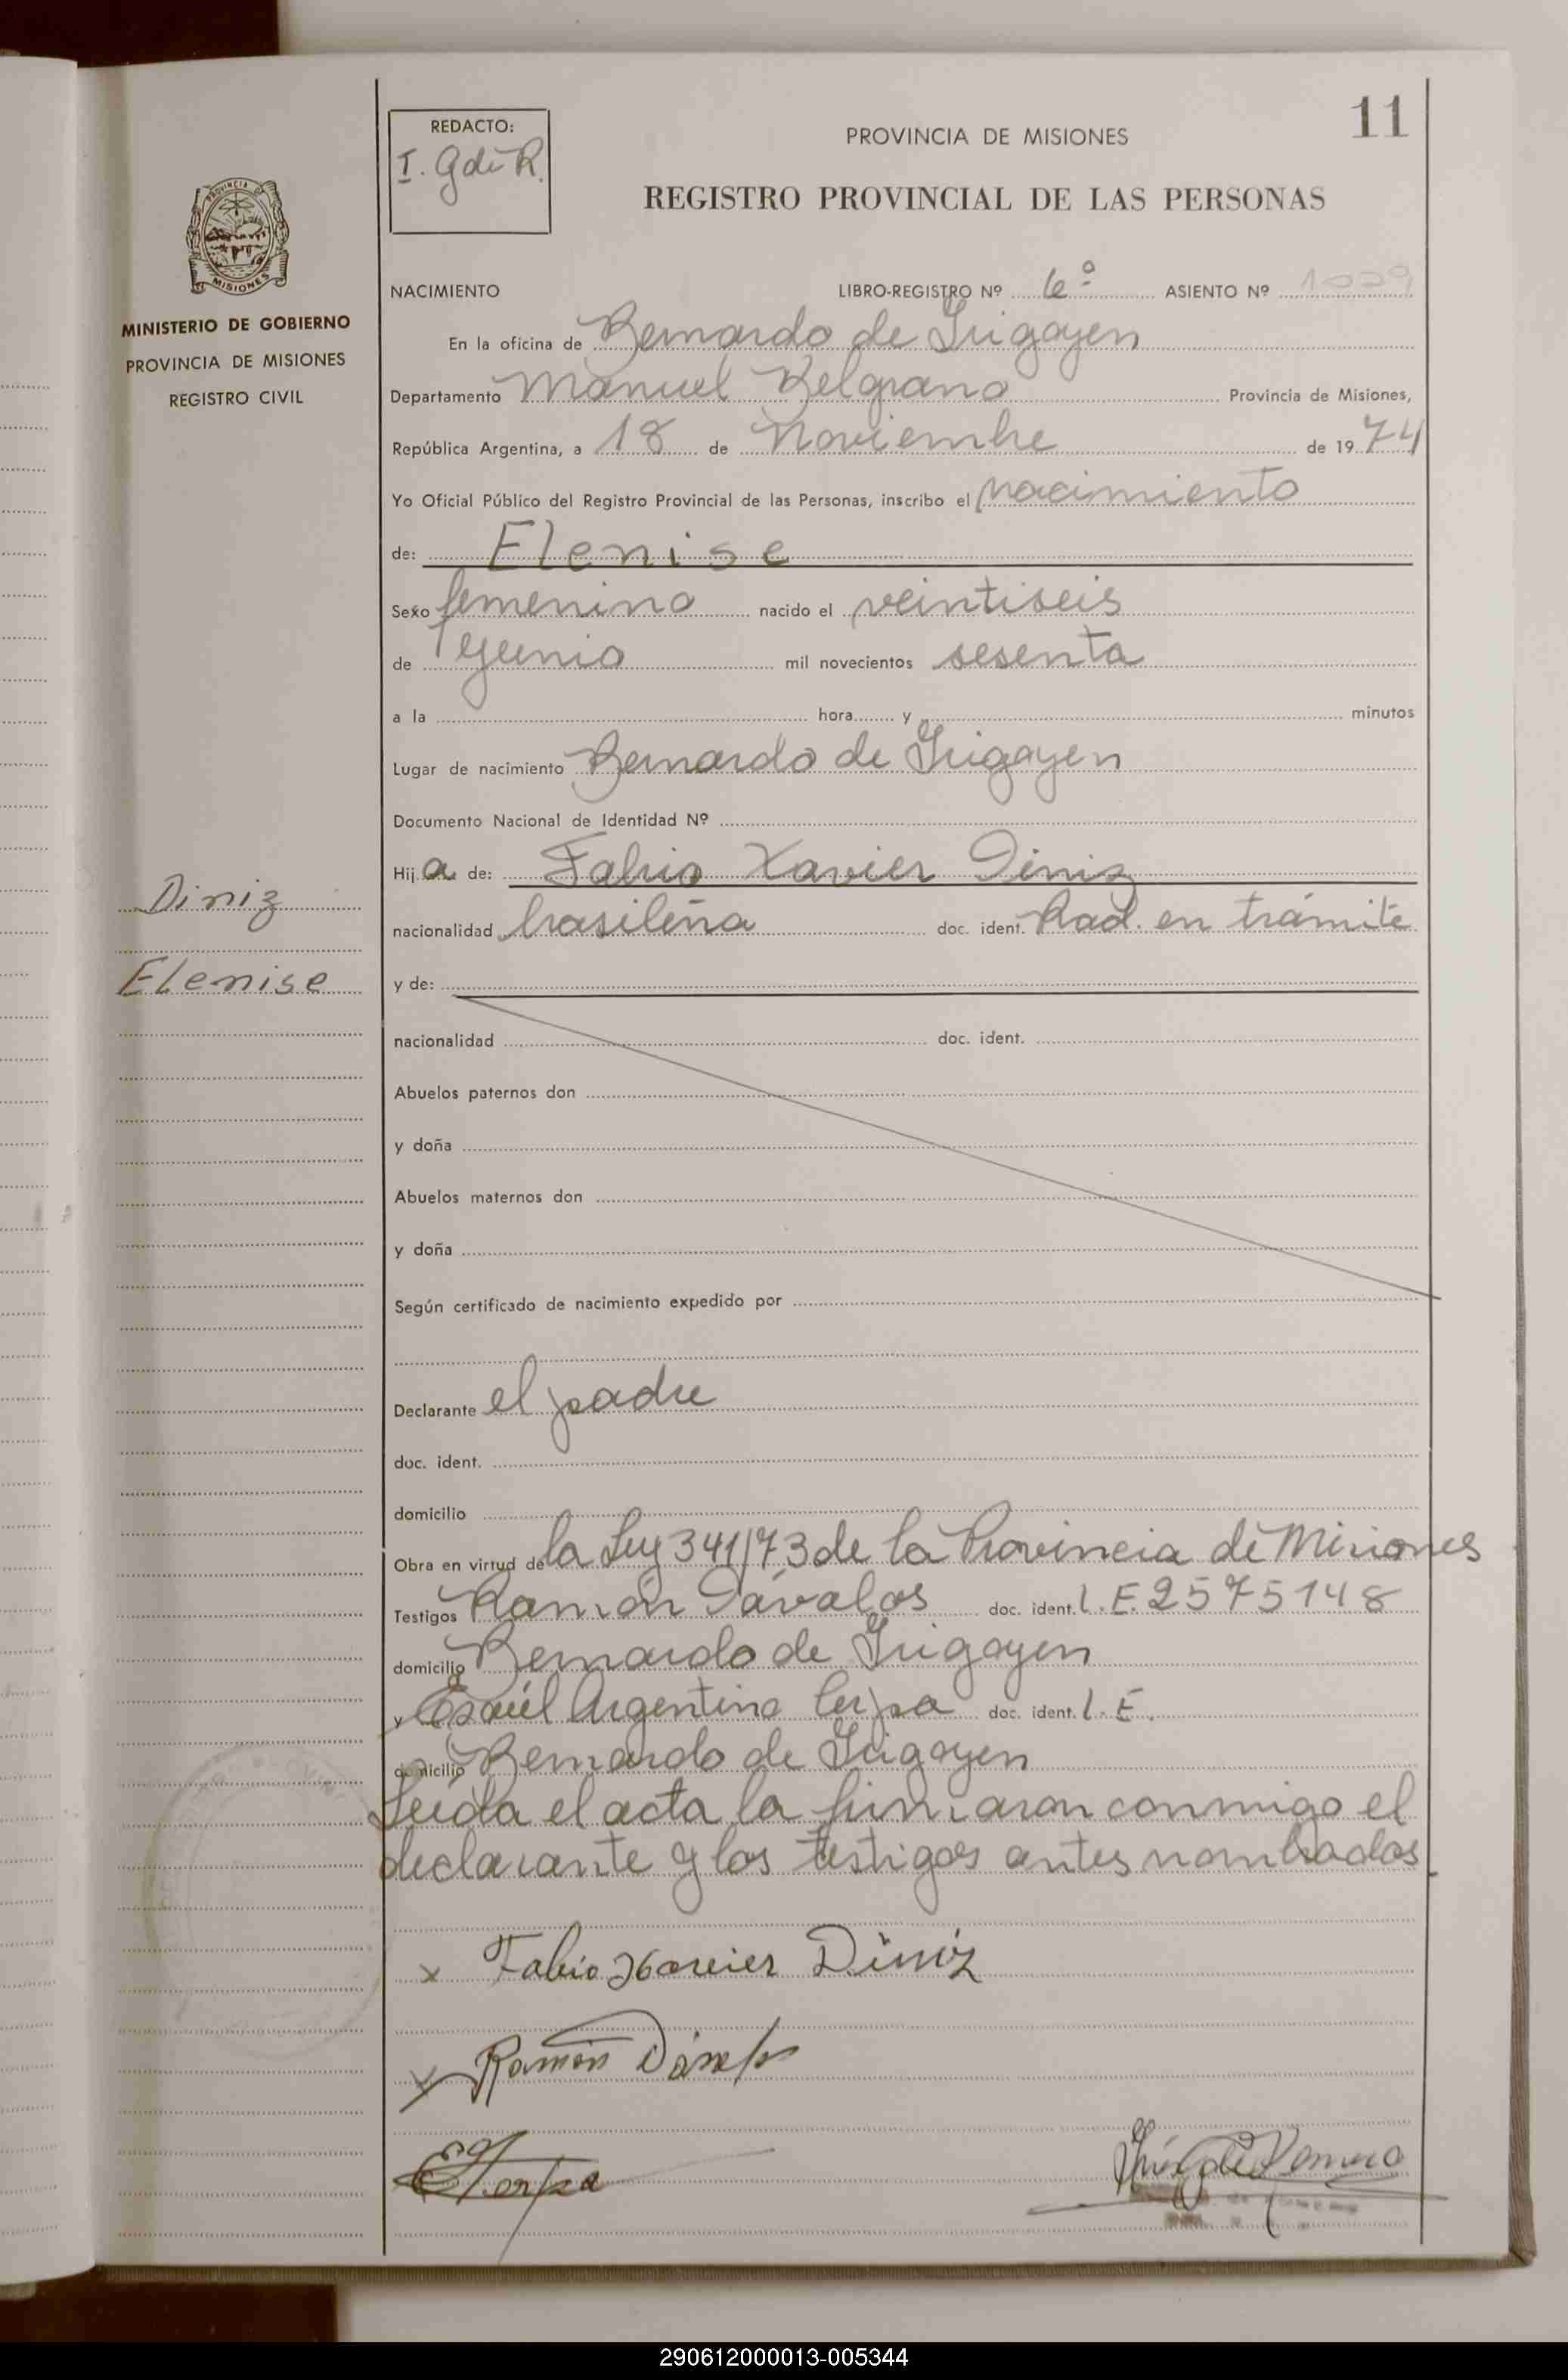 11
REDACTO:
I. G de R.
PROVINCIA DE MISIONES
REGISTRO PROVINCIAL DE LAS PERSONAS
MISIONES
MINISTERIO DE GOBIERNO
PROVINCIA DE MISIONES
REGISTRO CIVIL
NACIMIENTO LIBRO-REGISTRO Nº 6º ASIENTO Nº
En la oficina de Bernardo de Irigoyen
Departamento Manuel Belgrano Provincia de Misiones,
República Argentina, a 18 de Noviembre de 1974
Yo Oficial Público del Registro Provincial de las Personas, inscribo el nacimiento
de: Elenise
Sexo femenino nacido el veintiseis
de Junio mil novecientos sesenta
a la hora y minutos
Lugar de nacimiento Bernardo de Irigoyen
Documento Nacional de Identidad Nº
Hija de: Fabio Xavier Diniz
Diniz
nacionalidad brasileña doc. ident. Rad. en trámite
Elenise
y de:
nacionalidad doc. ident.
Abuelos paternos don
y doña
Abuelos maternos don
y doña
Según certificado de nacimiento expedido por
Declarante el padre
doc. ident.
domicilio
Obra en virtud de la Ley 341/73 de la Provincia de Misiones
Testigos Ramón Dávalos doc. ident. L.E. 2575148
domicilio Bernardo de Irigoyen
y Argentino doc. ident. L.E.
domicilio Bernardo de Irigoyen
Leída el acta la firmaron conmigo el
declarante y los testigos antes nombrados.
x Fabio Xavier Diniz
x Ramón Dávalos
290612000013-005344